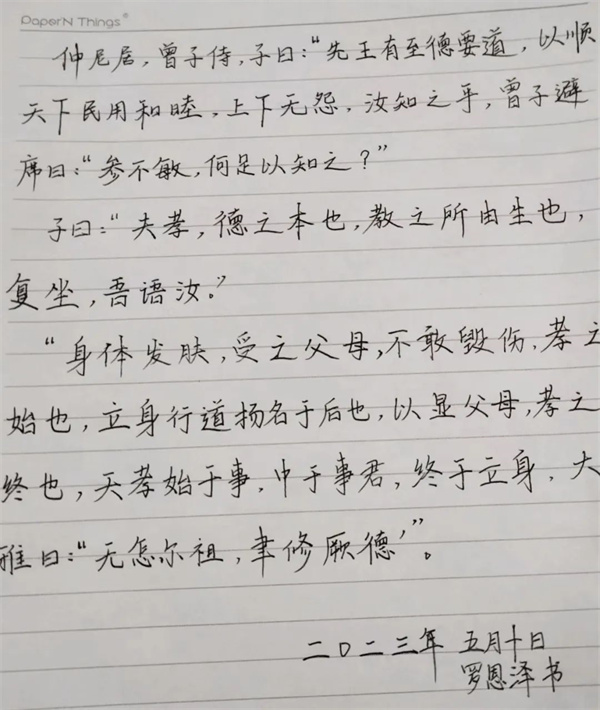 PaperN Things
仲尼居，曾子侍，子曰：“先王有至德要道，以顺
天下民用和睦，上下无怨，汝知之乎，曾子避
席曰：“参不敏，何足以知之？”
子曰：“夫孝，德之本也，教之所由生也，
复坐，吾语汝。”
“身体发肤，受之父母，不敢毁伤，孝之
始也，立身行道扬名于后也，以显父母，孝之
终也，天孝始于事，中于事君，终于立身，大
雅曰：“无怎尔祖，聿修厥德’”。
二〇二三年 五月十日
罗恩泽书